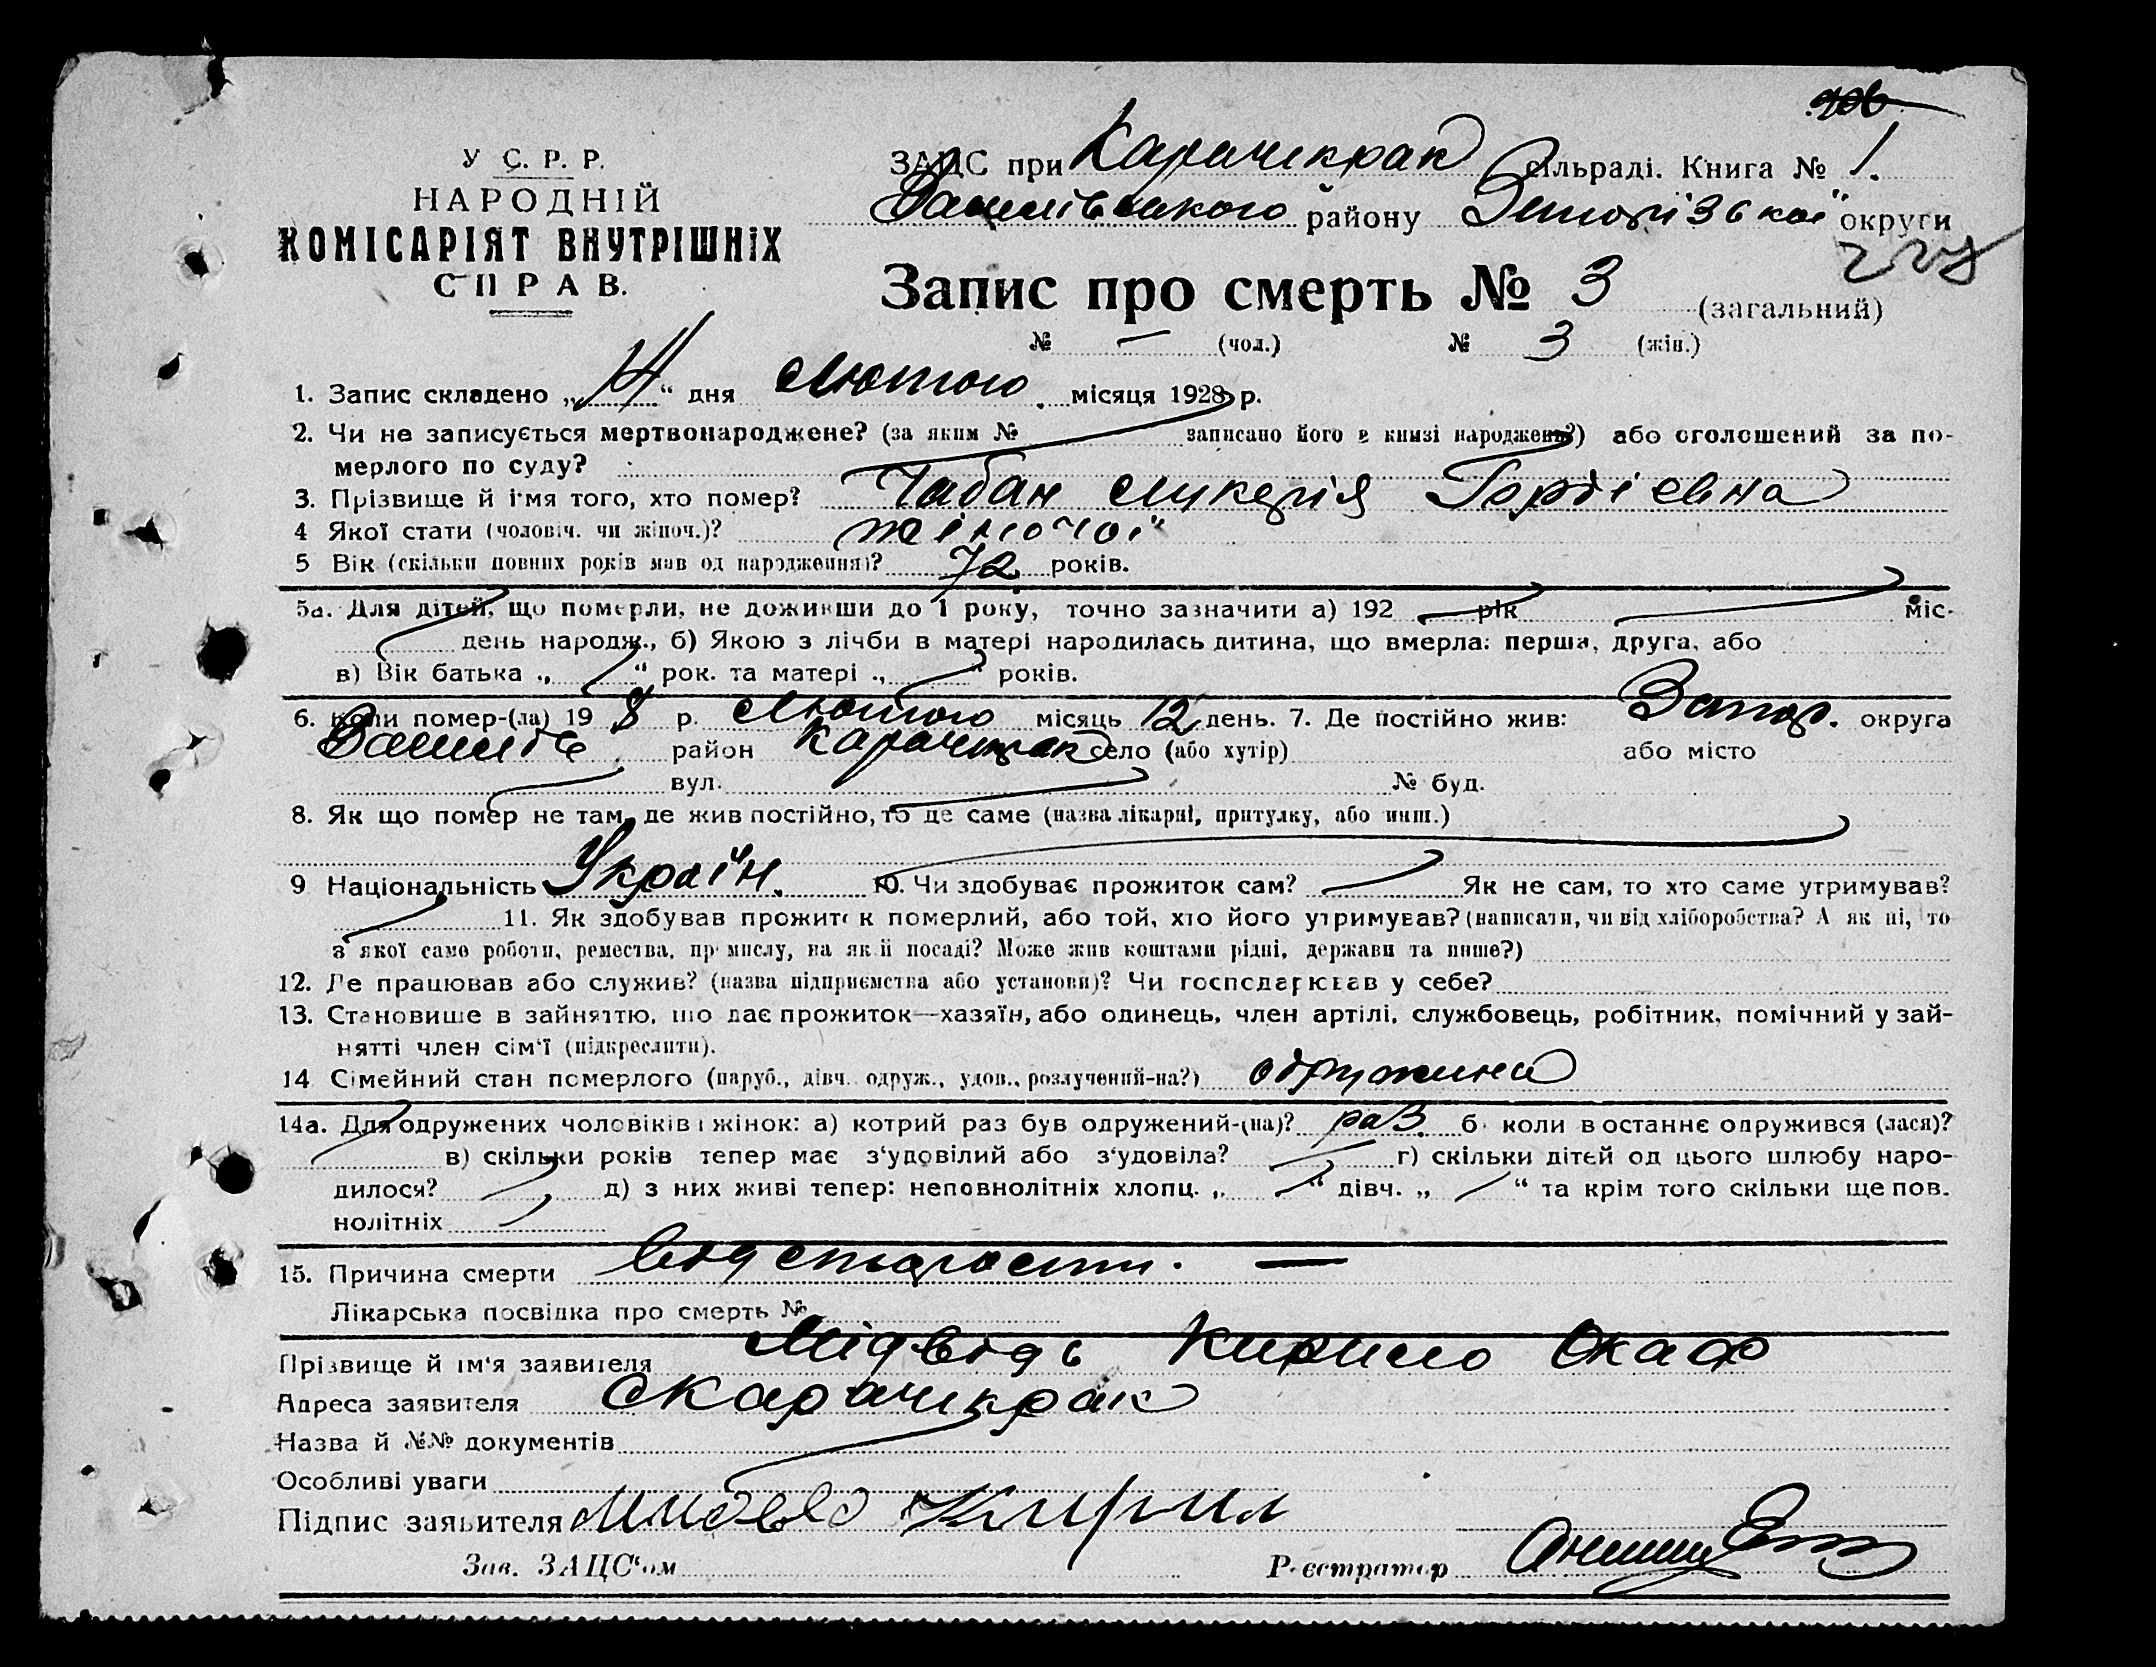 У С. Р. Р.
НАРОДНІЙ
КОМІСАРІЯТ ВНУТРІШНІХ
СПРАВ.
ЗАЦС при Карачикрак сільраді. Книга № 1.
району округи
Запис про смерть № 3 (загальний)
№ — (чол.) № 3 (жін.)
1. Запис складено „14“ дня Лютого місяця 1928 р.
2. Чи не записується мертвонароджене? (за яким № записано його в книзі народжень?) або оголошений за по-
мерлого по суду?
3. Прізвище й ім'я того, хто помер? Чабан Лукерія Гордієвна
4 Якої стати (чоловіч. чи жіноч.)? жіночої
5 Вік (скільки повних років мав од народження)? 72 років.
5а. Для дітей, що померли, не доживши до 1 року, точно зазначити а) 192 рік міс-
день народж., б) Якою з лічби в матері народилась дитина, що вмерла: перша, друга, або
в) Вік батька „ “ рок. та матері „ “ років.
6. Коли помер-(ла) 19 8 р. Лютого місяць 12 день. 7. Де постійно жив: Запор. округа
район Карачикрак село (або хутір) або місто
вул. № буд.
8. Як що помер не там, де жив постійно, то де саме (назва лікарні, притулку, або инш.)
9 Національність Україн. 10. Чи здобуває прожиток сам? Як не сам, то хто саме утримував?
11. Як здобував прожиток померлий, або той, хто його утримував? (написати, чи від хліборобства? А як ні, то
з якої само роботи, ремества, промислу, на якій посаді? Може жив коштами рідні, держави та инше?)
12. Де працював або служив? (назва підприємства або установи)? Чи господарював у себе?
13. Становище в зайняттю, що дає прожиток—хазяїн, або одинець, член артілі, службовець, робітник, помічний у зай-
нятті член сім'ї (підкреслити).
14 Сімейний стан померлого (паруб., дівч. одруж., удов., розлучений-на?) одружина
14а. Для одружених чоловіків і жінок: а) котрий раз був одружений-(на)? раз б) коли в останнє одружився (лася)?
в) скільки років тепер має з'удовілий або з'удовіла? г) скільки дітей од цього шлюбу наро-
дилося? д) з них живі тепер: неповнолітніх хлопц. „ “ дівч. „ “ та крім того скільки ще пов.
нолітніх
15. Причина смерти від старости. —
Лікарська посвідка про смерть №
Прізвище й ім'я заявителя Мідвідь Кирило
Адреса заявителя с Карачикрак
Назва й №№ документів
Особливі уваги
Підпис заявителя Кирил
Зав. ЗАЦС'ом Реєстратор